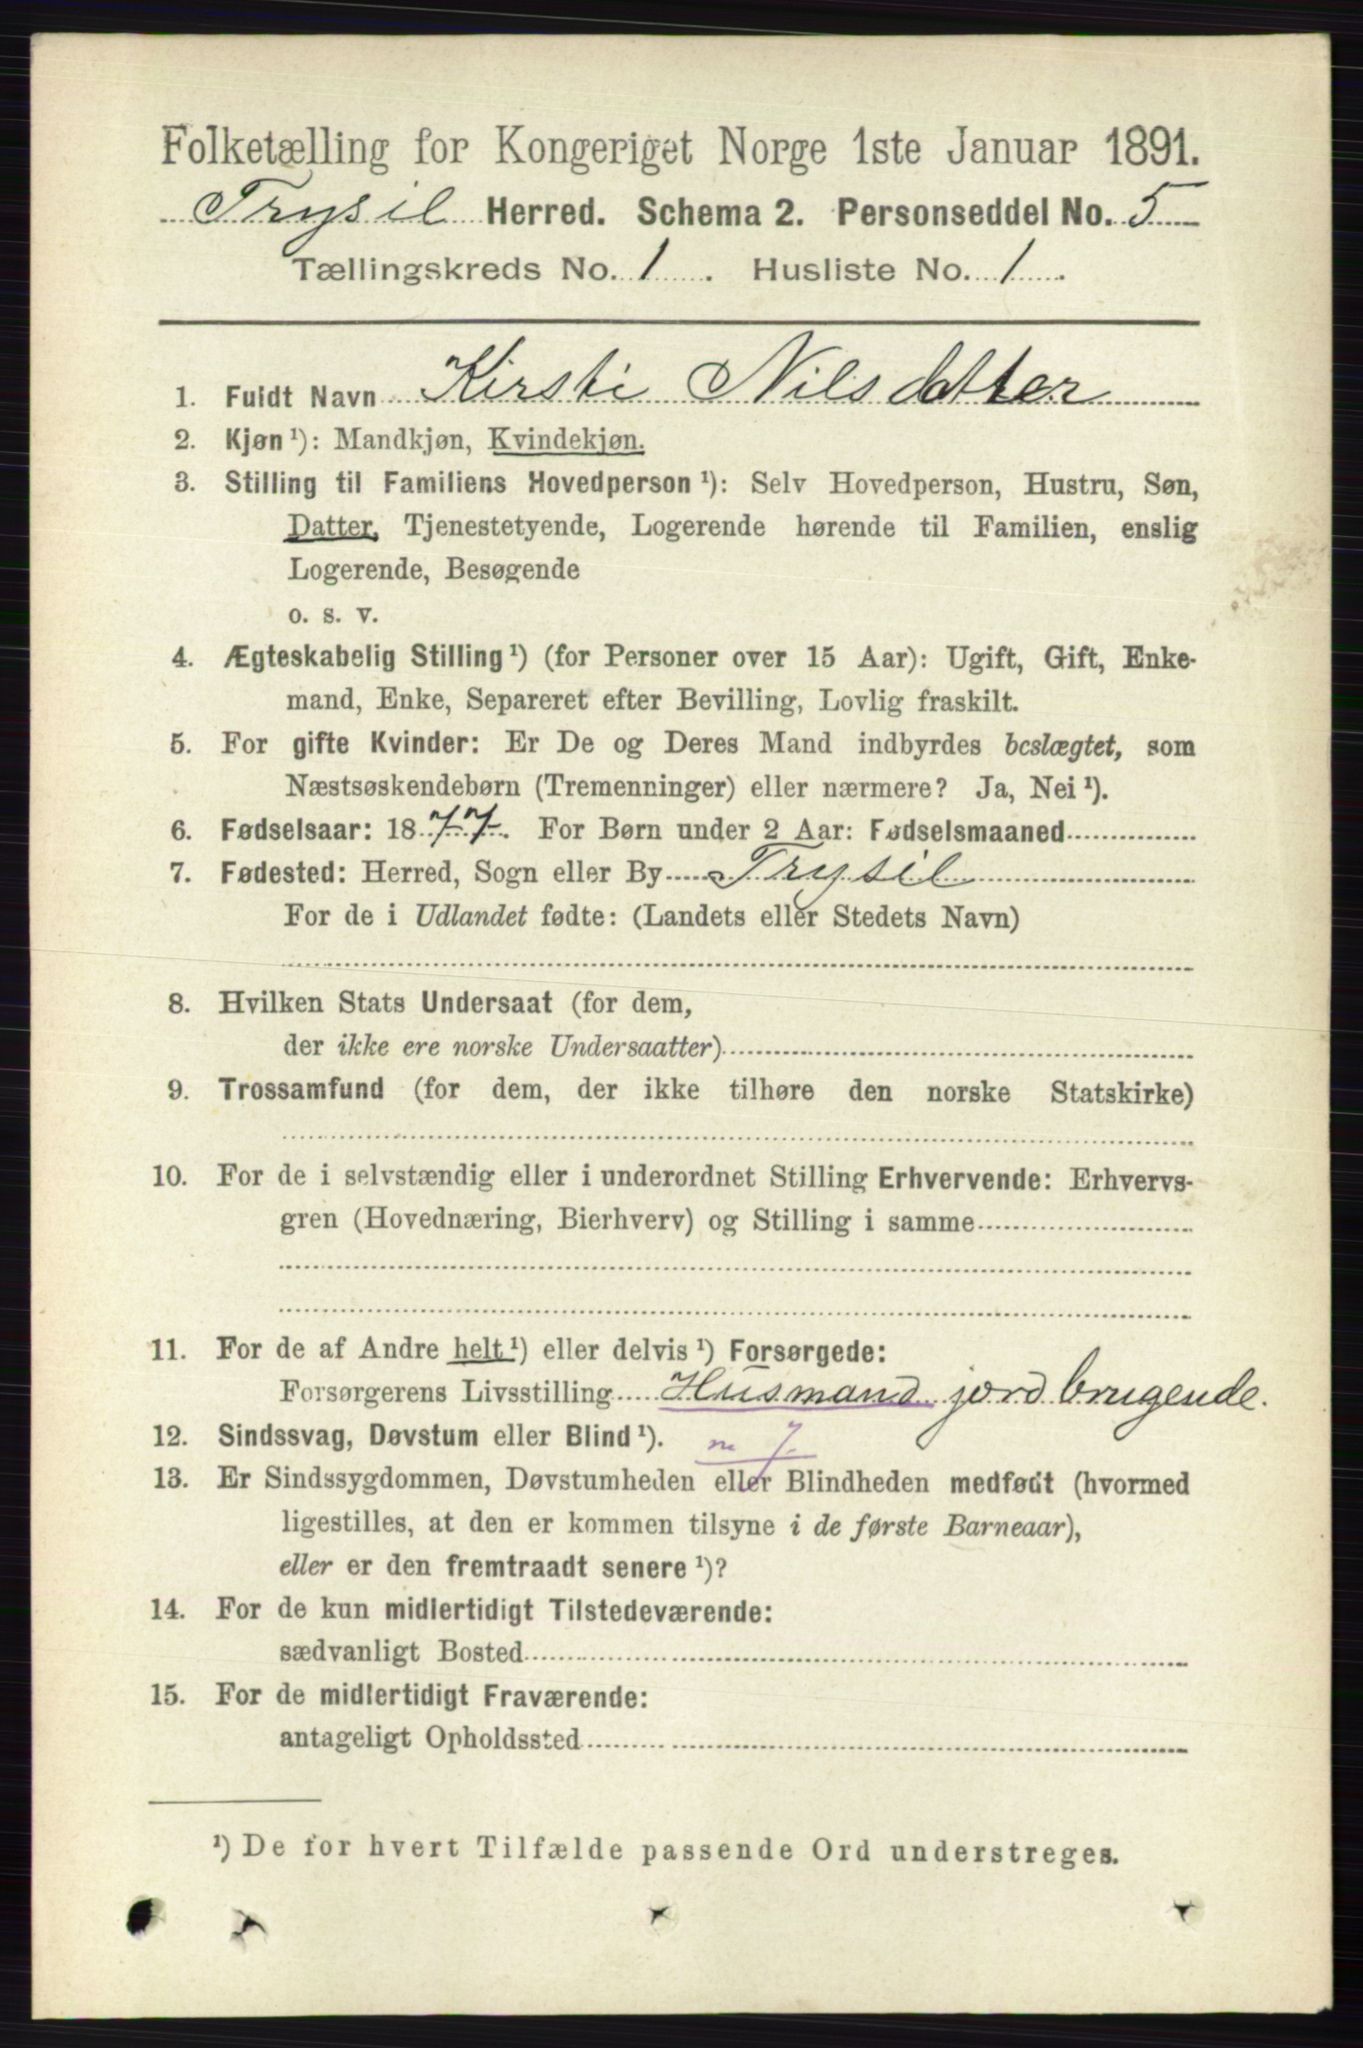 Folketælling for Kongeriget Norge 1ste Januar 1891.
Trysil Herred. Schema 2. Personseddel No. 5
Tællingskreds No. 1. Husliste No. 1.
1. Fuldt Navn Kirsti Nilsdatter
2. Kjøn ¹): Mandkjøn, Kvindekjøn.
3. Stilling til Familiens Hovedperson ¹): Selv Hovedperson, Hustru, Søn,
Datter, Tjenestetyende, Logerende hørende til Familien, enslig
Logerende, Besøgende
o. s. v.
4. Ægteskabelig Stilling ¹) (for Personer over 15 Aar): Ugift, Gift, Enke-
mand, Enke, Separeret efter Bevilling, Lovlig fraskilt.
5. For gifte Kvinder: Er De og Deres Mand indbyrdes beslægtet, som
Næstsøskendebørn (Tremenninger) eller nærmere? Ja, Nei ¹).
6. Fødselsaar: 1877. For Børn under 2 Aar: Fødselsmaaned
7. Fødested: Herred, Sogn eller By Trysil
For de i Udlandet fødte: (Landets eller Stedets Navn)
8. Hvilken Stats Undersaat (for dem,
der ikke ere norske Undersaatter)
9. Trossamfund (for dem, der ikke tilhøre den norske Statskirke)
10. For de i selvstændig eller i underordnet Stilling Erhvervende: Erhvervs-
gren (Hovednæring, Bierhverv) og Stilling i samme
11. For de af Andre helt ¹) eller delvis ¹) Forsørgede:
Forsørgerens Livsstilling Husmand jordbrugende.
12. Sindssvag, Døvstum eller Blind ¹).
13. Er Sindssygdommen, Døvstumheden eller Blindheden medfødt (hvormed
ligestilles, at den er kommen tilsyne i de første Barneaar),
eller er den fremtraadt senere ¹)?
14. For de kun midlertidigt Tilstedeværende:
sædvanligt Bosted
15. For de midlertidigt Fraværende:
antageligt Opholdssted
¹) De for hvert Tilfælde passende Ord understreges.